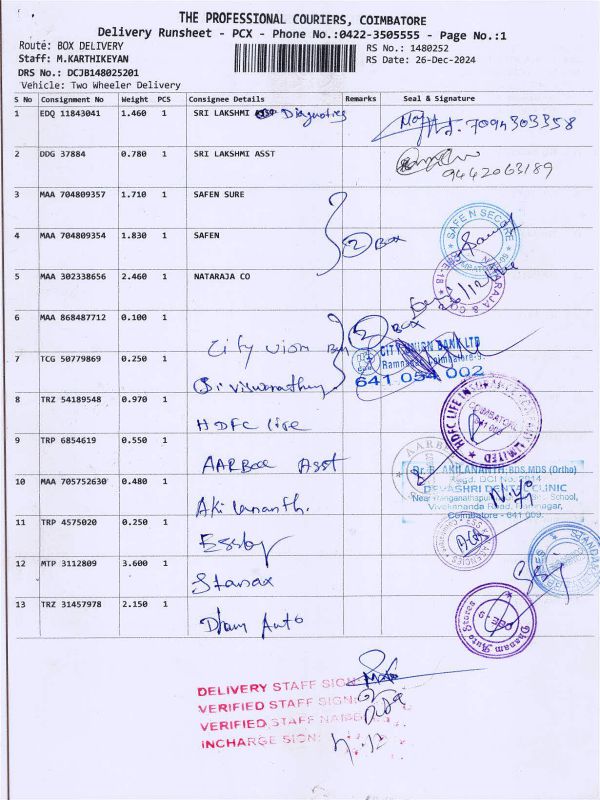 THE PROFESSIONAL COURIERS, COIMBATORE
Delivery Runsheet - PCX - Phone No.:0422-3505555 - Page No.:1
Route: BOX DELIVERY RS No.: 1480252
Staff: M.KARTHIKEYAN RS Date: 26-Dec-2024
DRS No.: DCJB148025201
Vehicle: Two Wheeler Delivery
S No Consignment No Weight PCS Consignee Details Remarks Seal & Signature
1 EDQ 11843041 1.460 1 SRI LAKSHMI Diagnostics 7094303358
2 DDG 37884 0.780 1 SRI LAKSHMI ASST 9442063189
3 MAA 704809357 1.710 1 SAFEN SURE
4 MAA 704809354 1.830 1 SAFEN 2 Box
SAFE N SECURE
5 MAA 302338656 2.460 1 NATARAJA CO
6 MAA 868487712 0.100 1 City Union Ban 2 Box
CITY UNION BANK LTD
Ramnagar, Coimbatore-9.
641 054 002
7 TCG 50779869 0.250 1 Sri Viswanathan
8 TRZ 54189548 0.970 1 HDFC life
HDFC LIFE INSURANCE COMPANY LIMITED
COIMBATORE
9 TRP 6854619 0.550 1 AARBEE Asst
AARBEE
10 MAA 705752630 0.480 1 Akilananth.
Dr. B. AKILANANTH, BDS,MDS (Ortho)
Regd. DCI No.
DEVASHRI DENTAL CLINIC
School,
Vivekananda Road, Ramnagar,
Coimbatore - 641 009.
11 TRP 4575020 0.250 1 Essky
ESS KAY AGENCIES
12 MTP 3112809 3.600 1 Stanax
13 TRZ 31457978 2.150 1 Dham Auto
Dhanam Auto Stores
CBE-9
DELIVERY STAFF SIGN
VERIFIED STAFF SIGN:
VERIFIED STAFF NAME
INCHARGE SIGN: